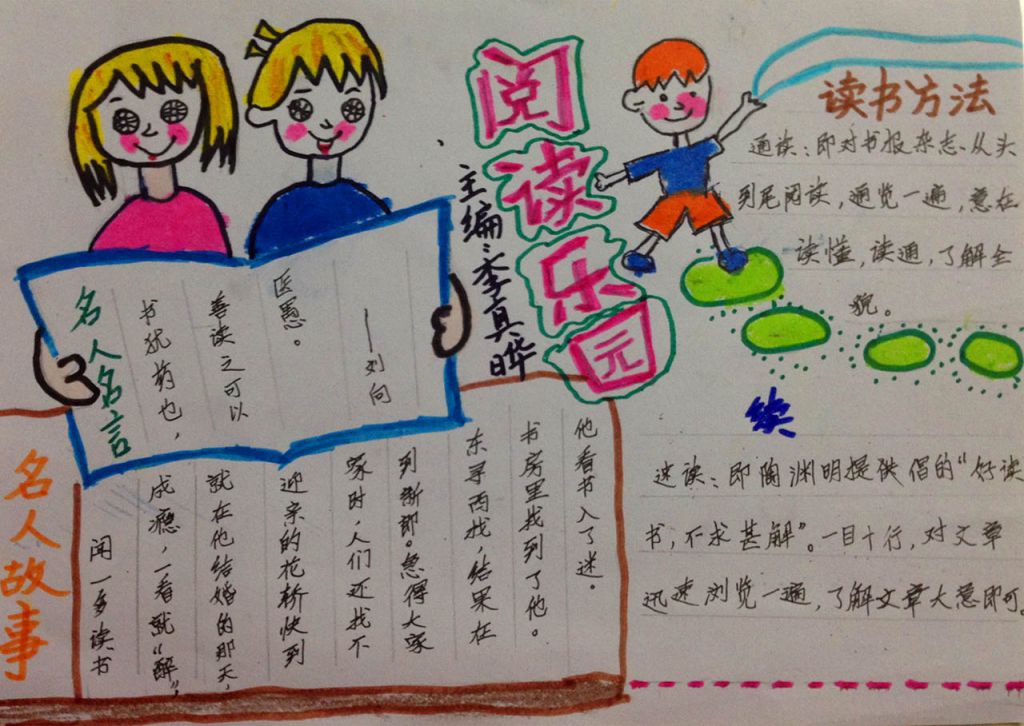 阅读乐园
主编:李真晔
名人名言
书犹药也，
善读之可以
医愚。
——刘向
名人故事
闻一多读书
成瘾，一看就“醉”，
就在他结婚的那天，
迎亲的花轿快到
家时，人们还找不
到新郎。急得大家
东寻西找，结果在
书房里找到了他。
他看书入了迷。
读书方法
通读：即对书报杂志、从头
到尾阅读，通览一遍，意在
读懂，读通，了解全
貌。
续
速读：即陶渊明提供倡的“好读
书，不求甚解”。一目十行，对文章
迅速浏览一遍，了解文章大意即可。